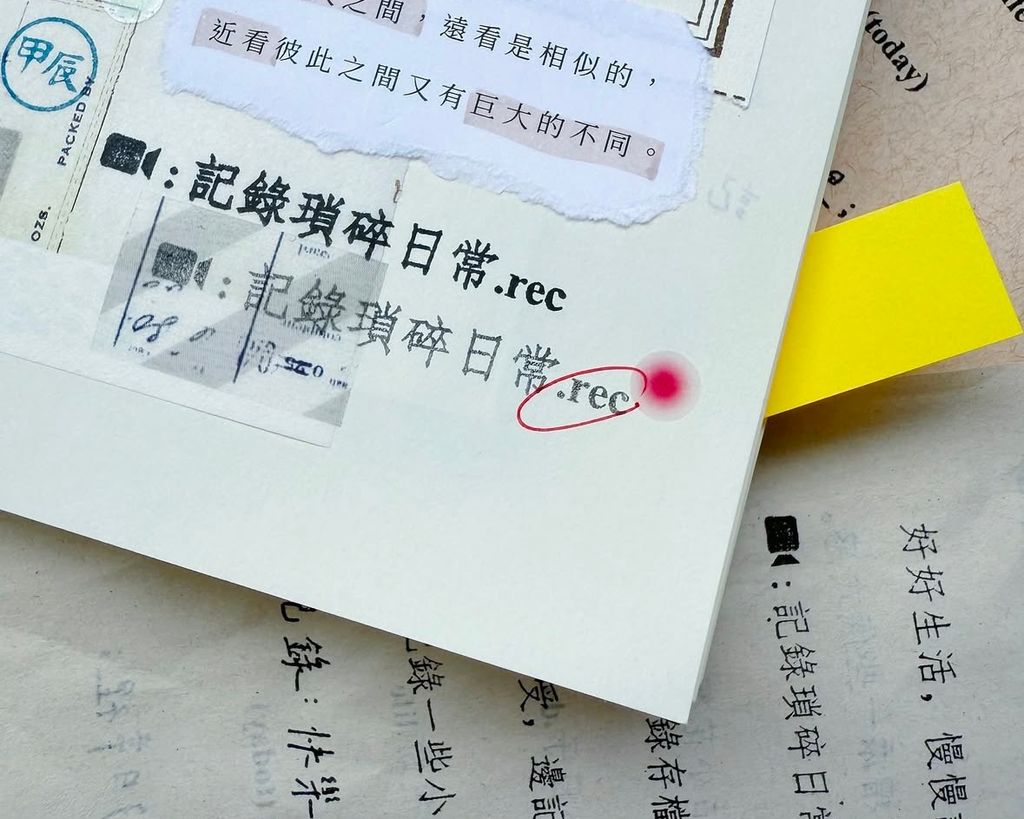 之間，遠看是相似的，
近看彼此之間又有巨大的不同。
甲辰
PACKED BY
OZS.
：記錄瑣碎日常.rec
：記錄瑣碎日常.rec
(today)
好好生活，慢慢
：記錄瑣碎日常
錄存檔
受，邊記
錄一些小
錄：快樂